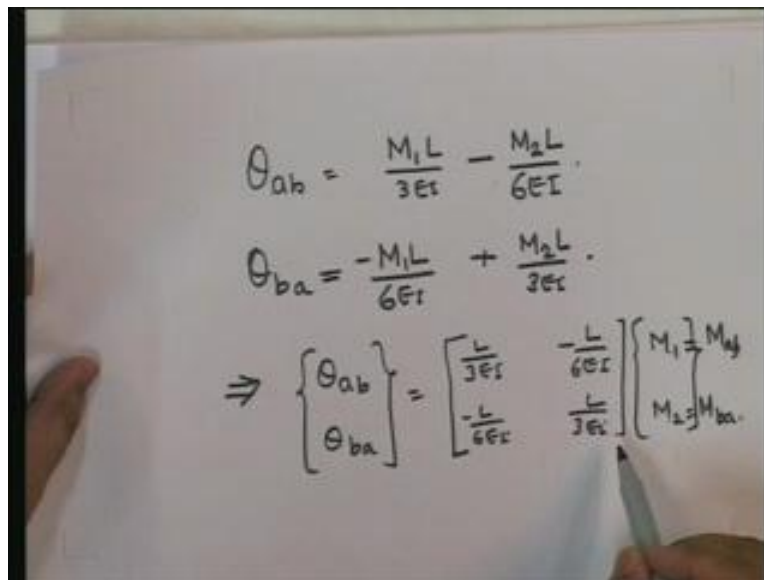 θab = M₁L/3EI − M₂L/6EI.
θba = −M₁L/6EI + M₂L/3EI.
⇒ {θab θba} = [L/3EI −L/6EI −L/6EI L/3EI] {M₁ = Mab M₂ = Mba.}